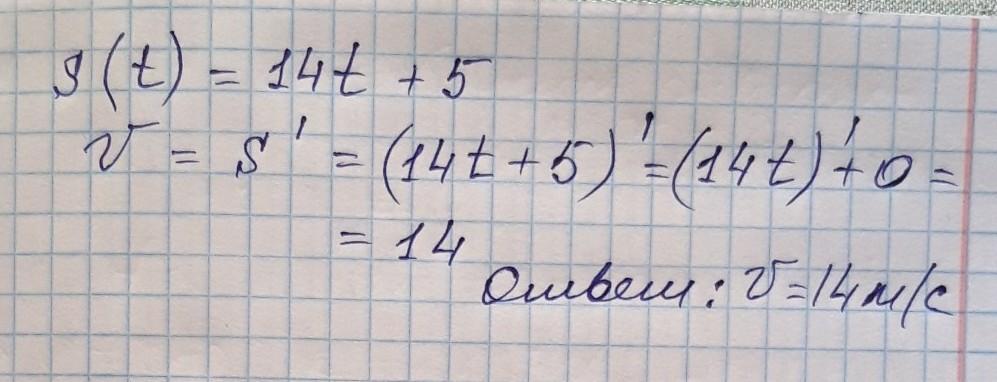 S(t) = 14t + 5
v = s' = (14t + 5)' = (14t)' + 0 =
= 14
Ответ: v = 14 м/с